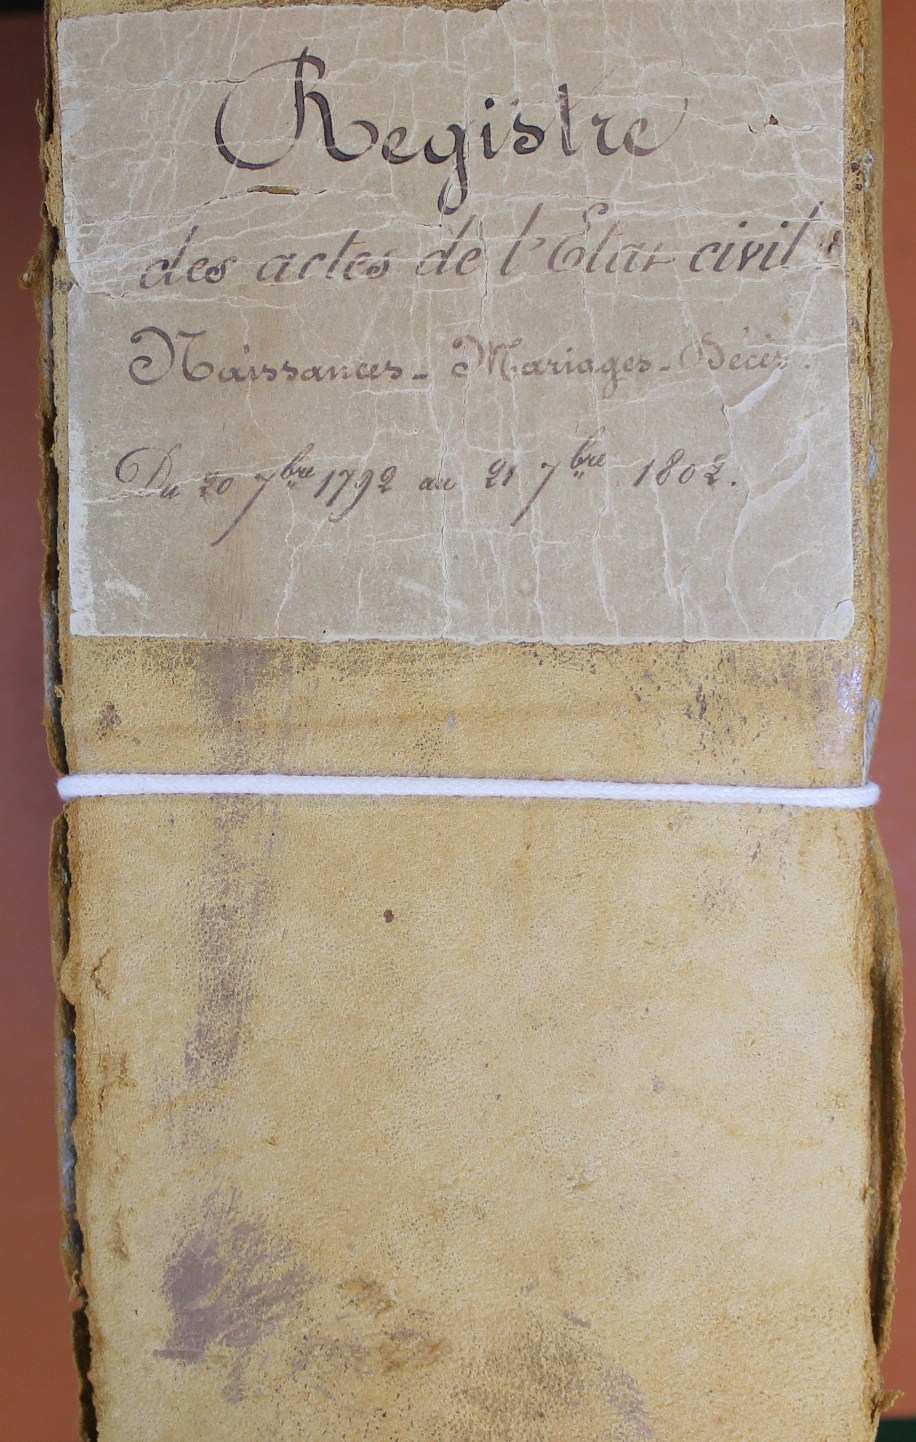 Registre
des actes de l'Etat civil :
Naissances - Mariages - Décès.
Du 20 7bre 1792 au 21 7bre 1802.